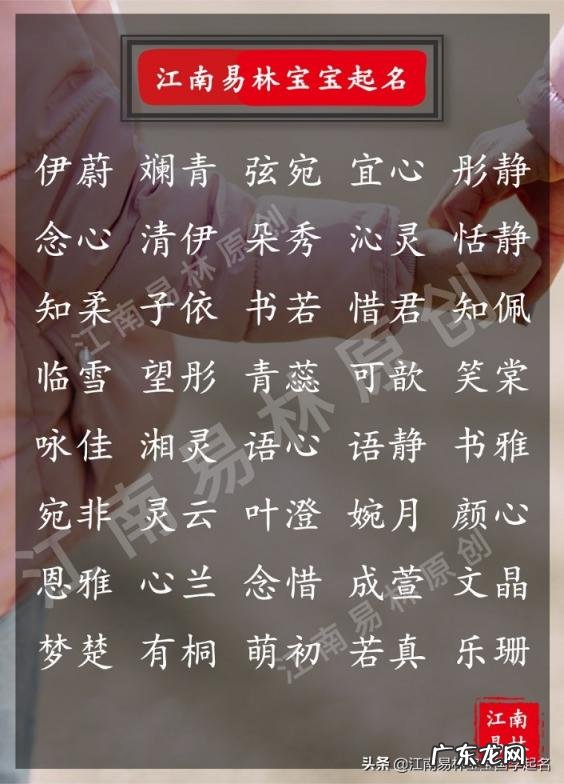 江南易林宝宝起名
伊蔚 斓青 弦宛 宜心 彤静
念心 清伊 朵秀 沁灵 恬静
知柔 子依 书若 惜君 知佩
临雪 望彤 青蕊 可歆 笑棠
咏佳 湘灵 语心 语静 书雅
宛非 灵云 叶澄 婉月 颜心
恩雅 心兰 念惜 成萱 文晶
梦楚 有桐 萌初 若真 乐珊
江南易林原创
江南易林原创
江南易林原创
江南
易林
头条 @江南易林宝宝国学起名
广东龙网